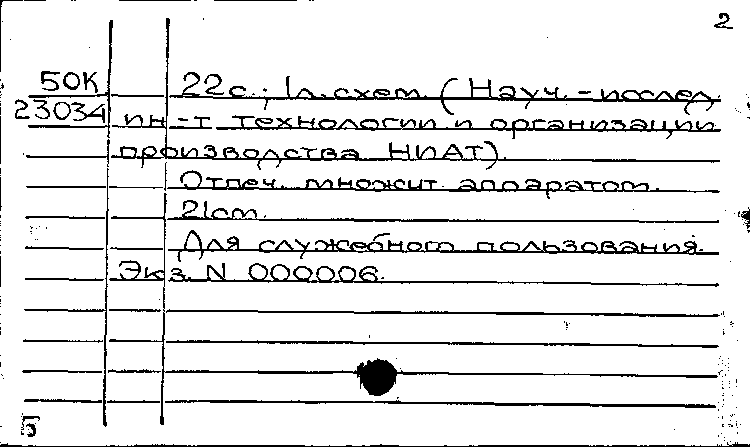 2
50К 22с.; 1л.схем. (Науч.-исслед.
23034 ин-т технологии и организации
производства НИАТ).
Отпеч. множит. аппаратом.
21cm.
Для служебного пользования.
Экз. N 000006.